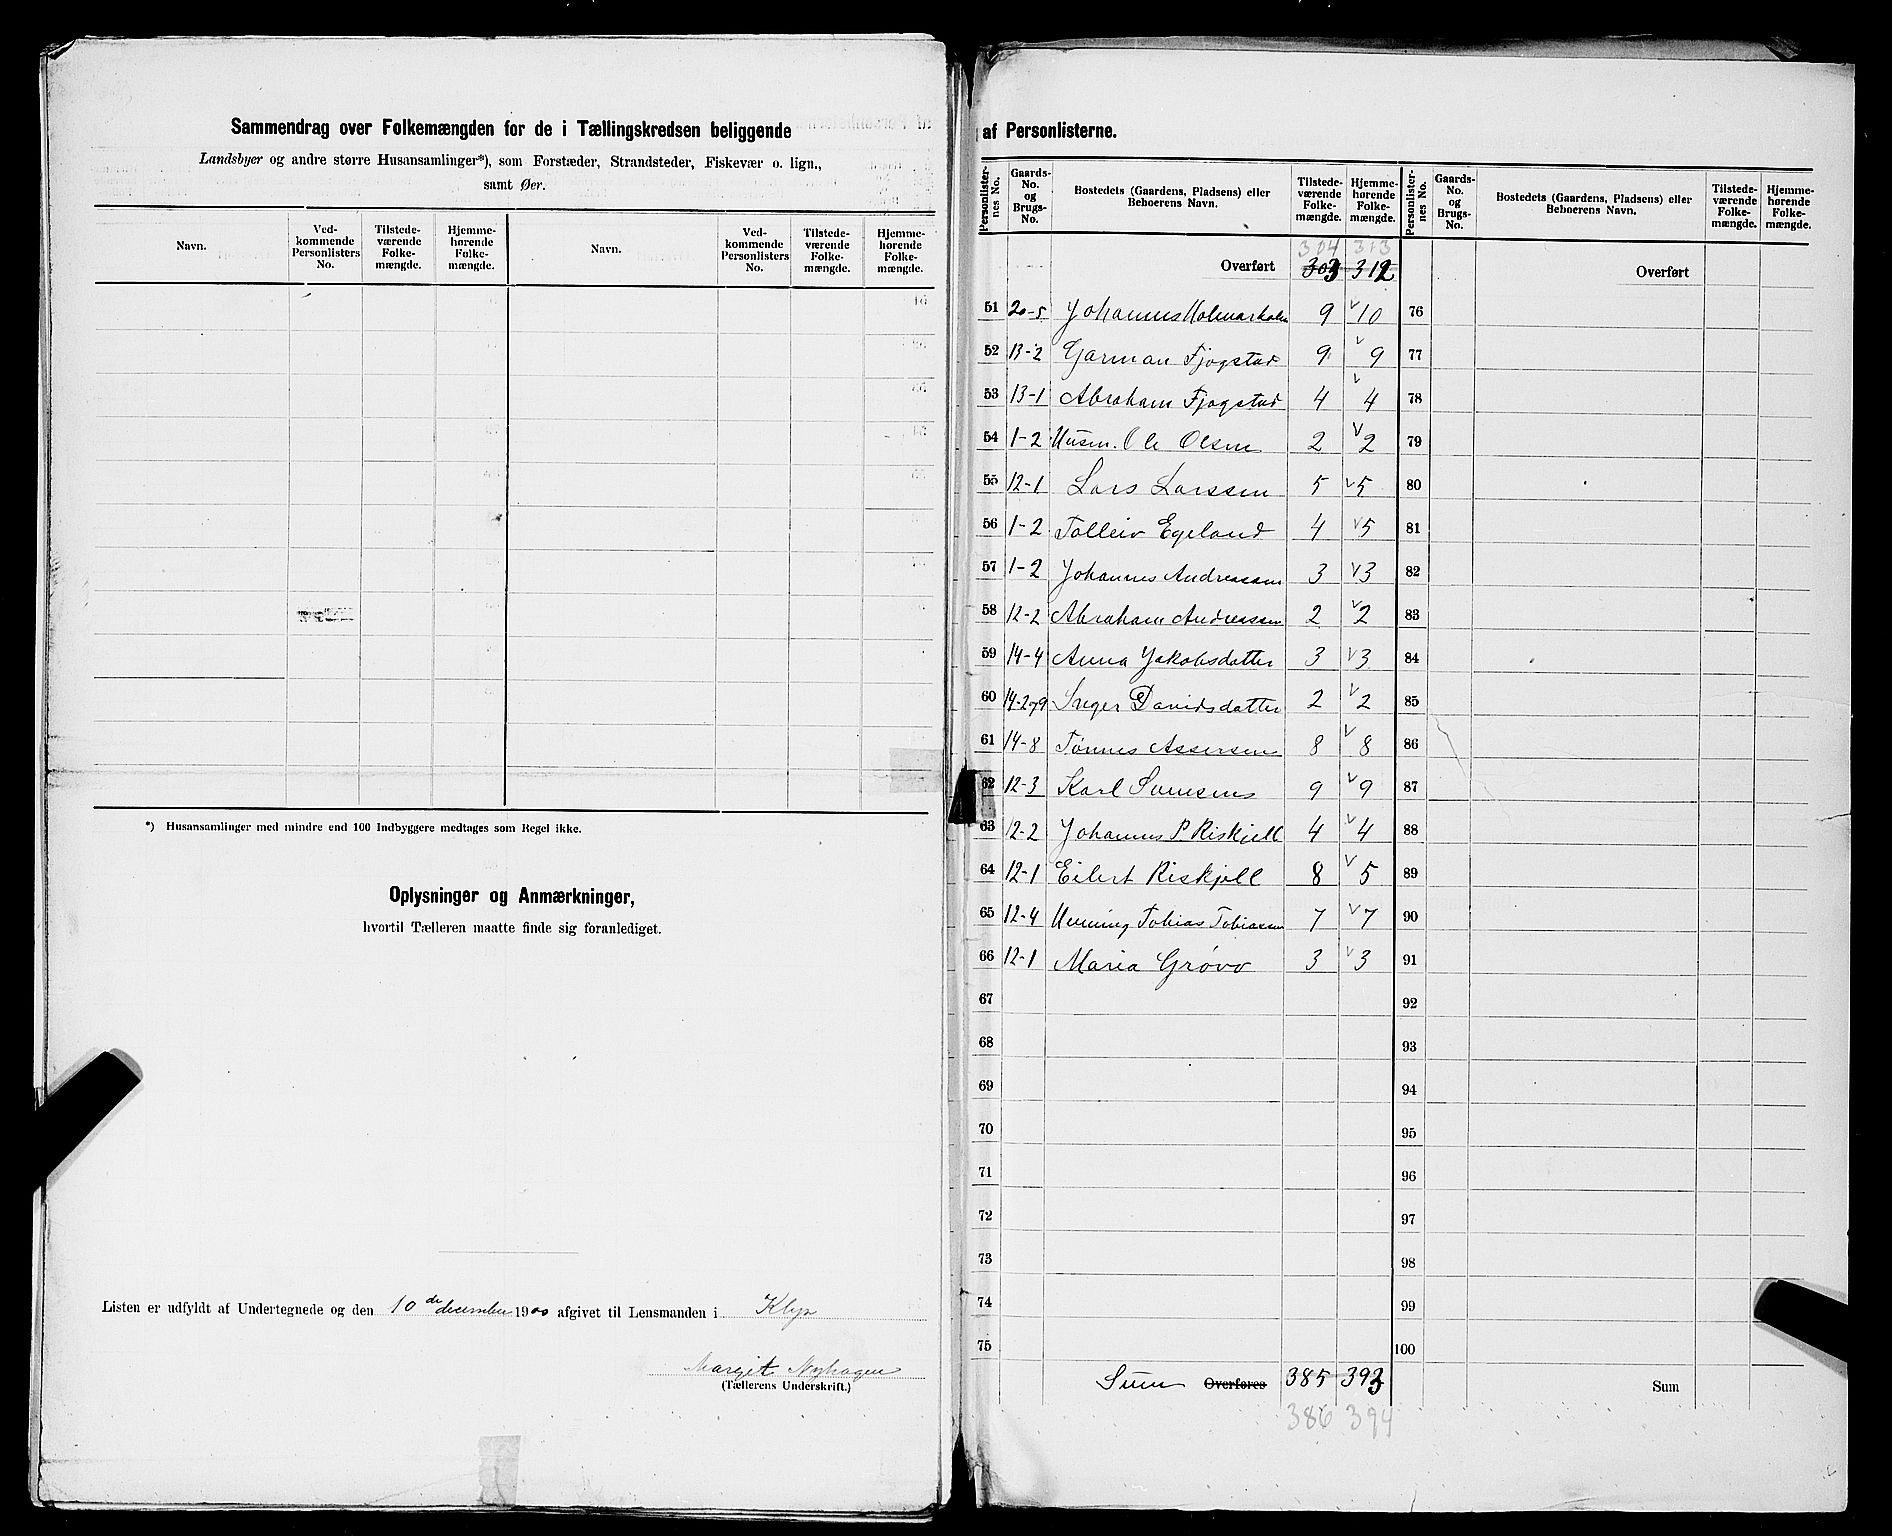 Sammendrag over Folkemængden for de i Tællingskredsen beliggende
Landsbyer og andre større Husansamlinger*), som Forstæder, Strandsteder, Fiskevær o. lign.,
samt Øer.
Navn. Ved-kommende Personlisters No. Tilstede-værende Folke-mængde. Hjemme-hørende Folke-mængde. Navn. Ved-kommende Personlisters No. Tilstede-værende Folke-mængde. Hjemme-hørende Folke-mængde.
*) Husansamlinger med mindre end 100 Indbyggere medtages som Regel ikke.
Oplysninger og Anmærkninger,
hvortil Tælleren maatte finde sig foranlediget.
Listen er udfyldt af Undertegnede og den 10de december 1900 afgivet til Lensmanden i Klep
Margit Nyhagen
(Tællerens Underskrift.)
af Personlisterne.
Personlister-nes No. Gaards-No. og Brugs-No. Bostedets (Gaardens, Pladsens) eller Beboerens Navn. Tilstede-værende Folke-mængde. Hjemme-hørende Folke-mængde. Personlister-nes No. Gaards-No. og Brugs-No. Bostedets (Gaardens, Pladsens) eller Beboerens Navn. Tilstede-værende Folke-mængde. Hjemme-hørende Folke-mængde.
304 313
Overført 303 312 Overført
51 20-5 Johannes 9 v 10 76
52 13-2 Garman Fjogstad 9 v 9 77
53 13-1 Abraham Fjogstad 4 v 4 78
54 1-2 Husm. Ole Olsen 2 v 2 79
55 12-1 Lars Larssen 5 v 5 80
56 1-2 Tolleiv Egeland 4 v 5 81
57 1-2 Johannes Andreassen 3 v 3 82
58 12-2 Abraham Andreassen 2 v 2 83
59 14-4 Anna Jakobsdatter 3 v 3 84
60 14-2 79 Inger Davidsdatter 2 v 2 85
61 14-8 Tønnes Assersen 8 v 8 86
62 12-3 Karl 9 v 9 87
63 12-2 Johannes P. Riskjell 4 v 4 88
64 12-1 Eilert Riskjell 8 v 5 89
65 12-4 Henning Tobias Tobiassen 7 v 7 90
66 12-1 Maria 3 v 3 91
67 92
68 93
69 94
70 95
71 96
72 97
73 98
74 99
75 100
Sum Overføres 385 393 Sum
386 394